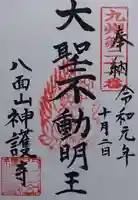 奉納
九州第二十番
令和元年
十月二日
大聖不動明王
八面山神護寺